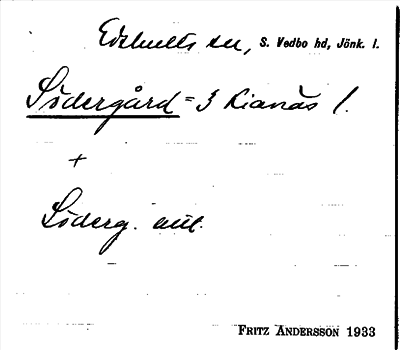 Edshults sn, S. Vedbo hd, Jönk. l.
Södergård = 3 Kianäs 1.
+
Söderg. utt.
FRITZ ANDERSSON 1933